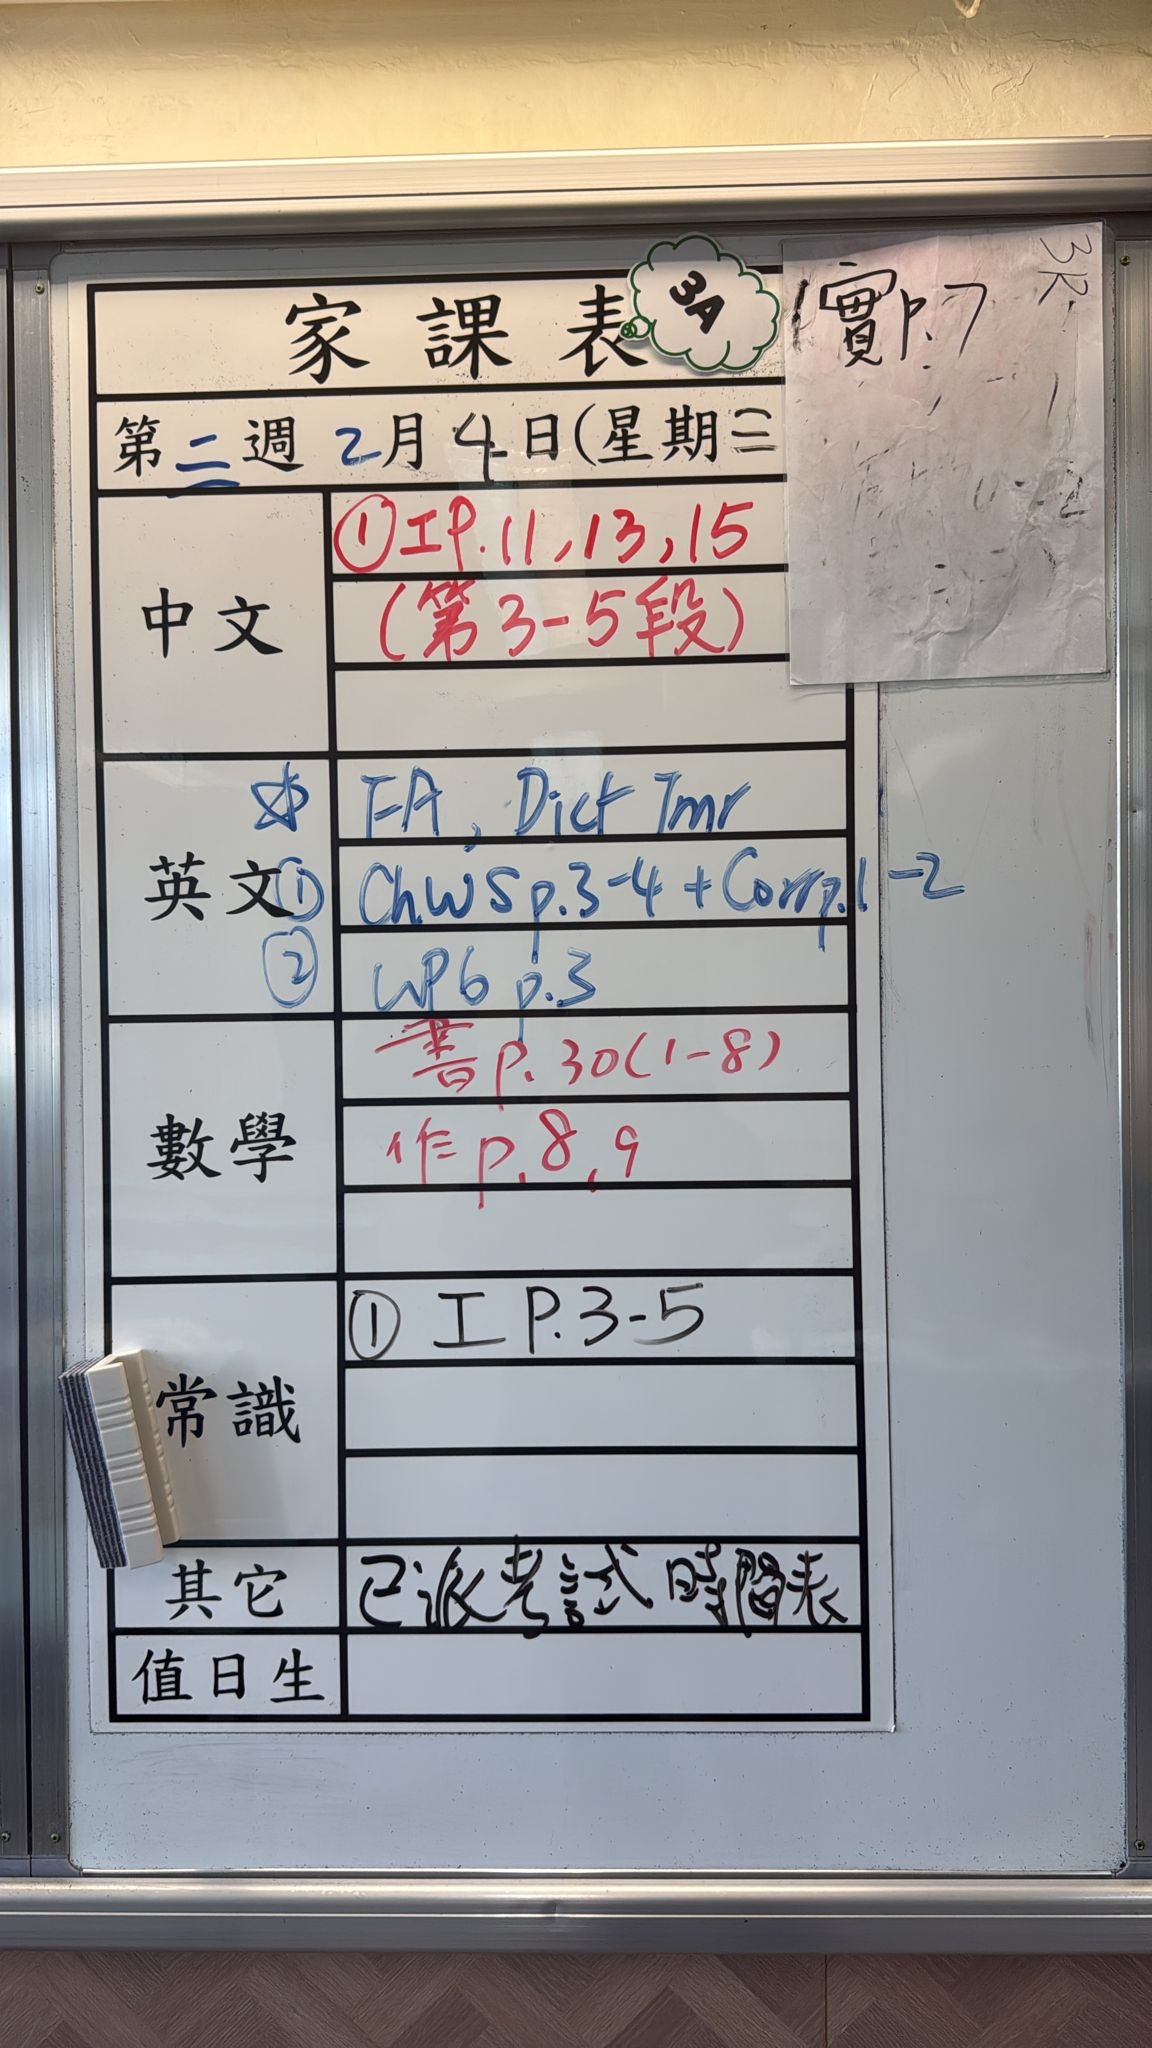 家課表
3A
實P.7
3R
第二週 2月4日(星期三
中文
①工P.11,13,15
(第3-5段)
英文
☆ FA, Dict Tmr
① Ch.WS p.3-4 + Corr p.1-2
② WP6 p.3
數學
書p.30(1-8)
作p.8,9
常識
① 工P.3-5
其它
已派考試時間表
值日生